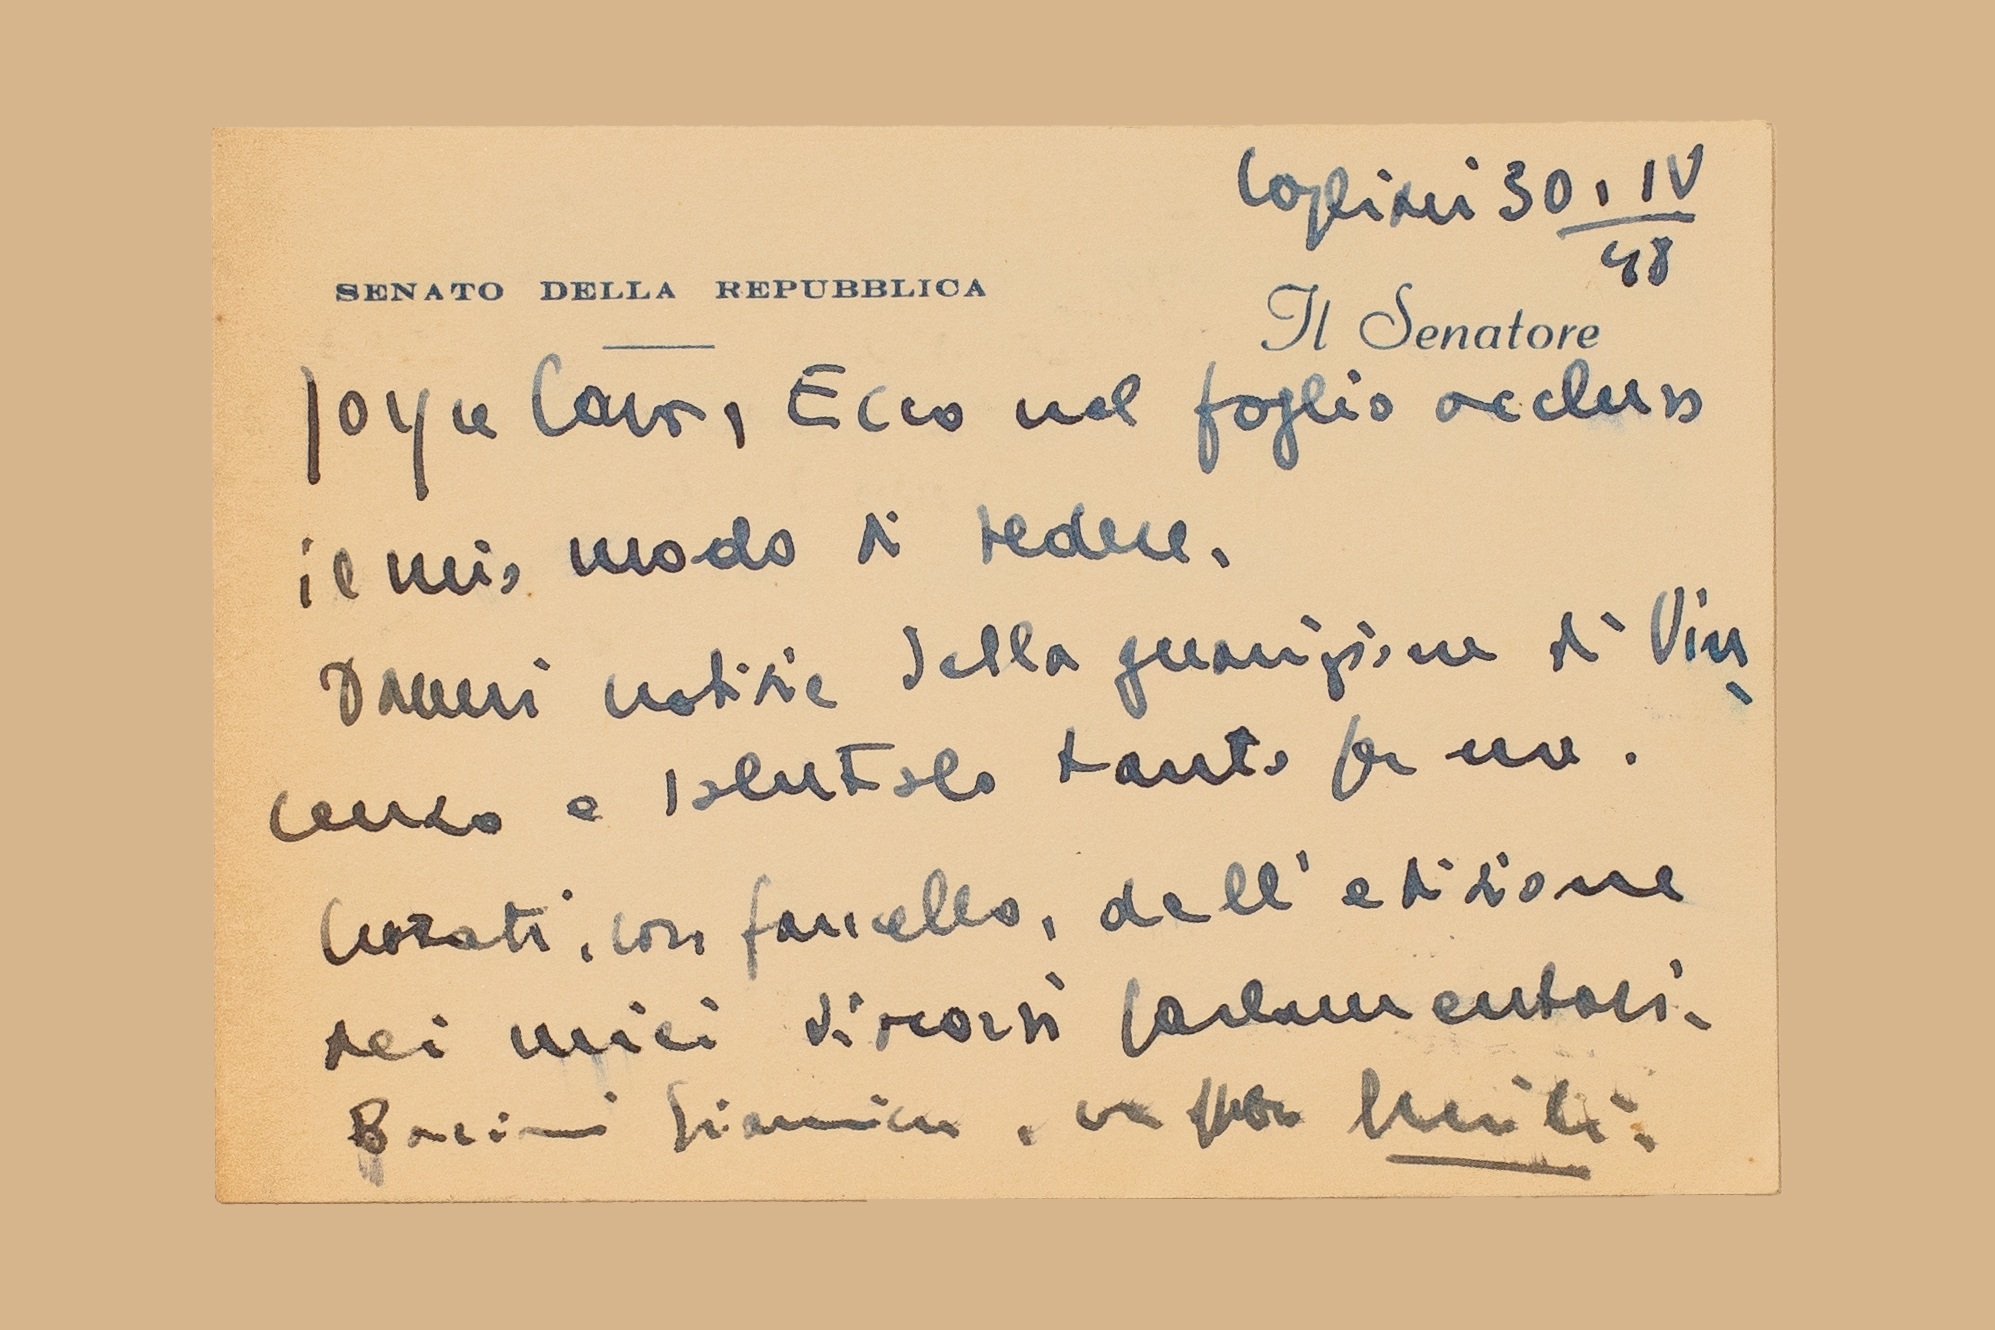 Cagliari 30. IV
48
SENATO DELLA REPUBBLICA
Il Senatore
Joyce Cara, Ecco nel foglio accluso
il mio modo di vedere.
Dammi notizie della guarigione di Vin
cenzo e salutalo tanto per me.
Curati, con fancello, dell'edizione
dei miei discorsi parlamentari.
Baciami Giannicu.